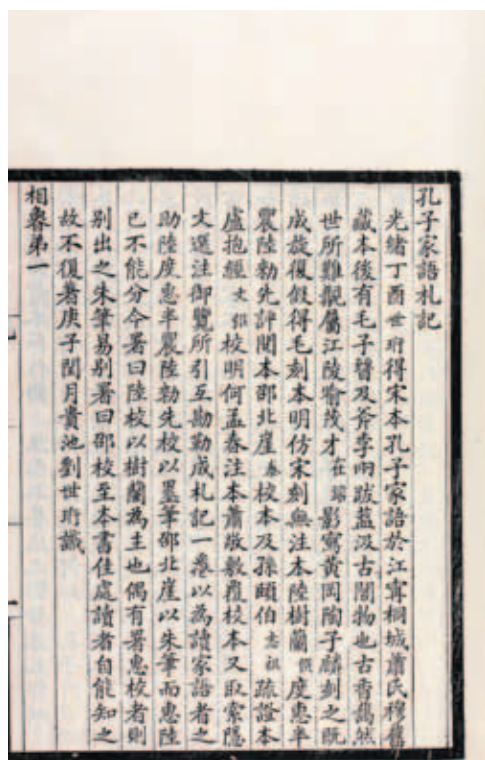 孔子家語札記
光緒丁酉世珩得宋本孔子家語於江寧桐城蕭氏穆舊
藏本後有毛子晉及斧季兩跋蓋汲古閣物也古香靄然
世所難覯屬江陵喻茂才在鎔影寫黄岡陶子麟刻之既
成旋復假得毛刻本明仿宋刻無注本陸樹蘭僎度惠半
農陸勅先評閲本邵北崖泰校本及孫頤伯志祖疏證本
盧抱經文弨校明何孟春注本蕭敬敷覆校本又取索隱
文選注御覽所引互勘勒成札記一卷以為讀家語者之
助陸度惠半農陸勅先校以墨筆邵北崖以朱筆而惠陸
已不能分今署曰陸校以樹蘭為主也偶有署惠校者則
别出之朱筆易别署曰邵校至本書佳處讀者自能知之
故不復著庚子閏月貴池劉世珩識
相魯第一